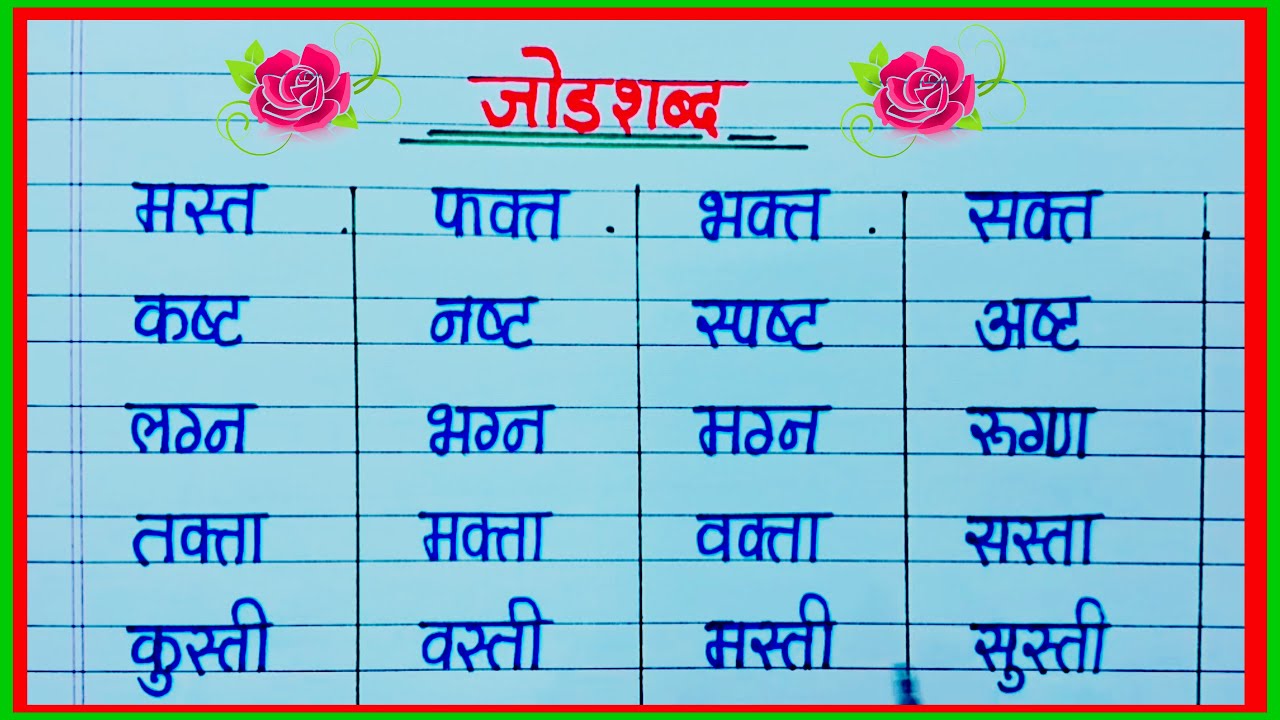 जोडशब्द
मस्त फक्त भक्त सक्त
कष्ट नष्ट स्पष्ट अष्ट
लग्न भग्न मग्न रूग्ण
तक्ता मक्ता वक्ता सस्ता
कुस्ती वस्ती मस्ती सुस्ती